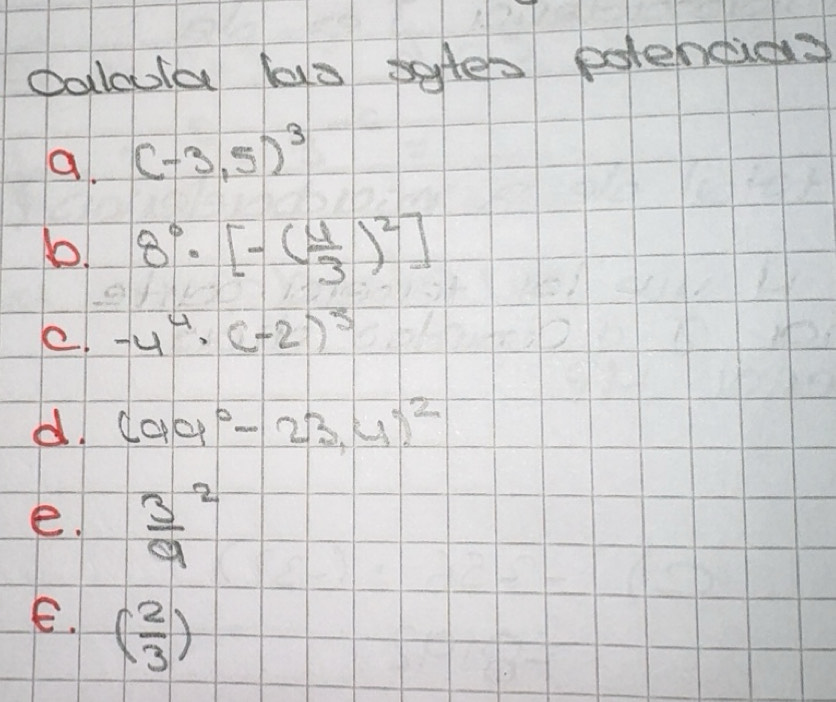 Calcula las sgtes potencias
a. (-3,5)³
b. 8⁰ · [-(4/3)²]
c. -4⁴ · (-2)³
d. (99⁰ - 23,4)²
e. 3²/9
f. (2/3)